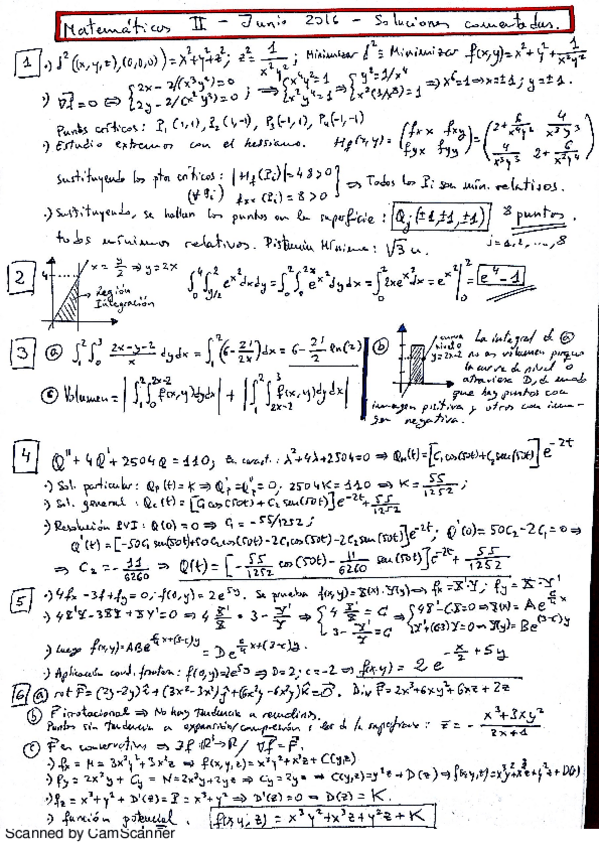 Matemáticas II - Junio 2016 - Soluciones comentadas.
1 •) d²((x,y,z),(0,0,0)) = x²+y²+z²; z² = 1/(x²y²); Minimizar d² ≡ Minimizar f(x,y) = x²+y²+1/(x²y²)
•) ∇f = 0 ⇔ {2x - 2/(x³y²) = 0; 2y - 2/(x²y³) = 0; ⇒ {x⁴y² = 1; x²y⁴ = 1 ⇒ {y² = 1/x⁴ ⇒ x⁶ = 1 ⇒ x = ±1; y = ±1.
Puntos críticos: P₁(1,1), P₂(1,-1), P₃(-1,1), P₄(-1,-1)
•) Estudio extremos con el hessiano. Hf(x,y) = (fxx fxy; fyx fyy) = (2+6/(x⁴y²) 4/(x³y³); 4/(x³y³) 2+6/(x²y⁴))
sustituyendo los ptos críticos: |Hf(Pi)| = 48 > 0; fxx(Pi) = 8 > 0 (∀ Pi) ⇒ Todos los Pi son mín. relativos.
•) Sustituyendo, se hallan los puntos en la superficie: Qj(±1,±1,±1) 8 puntos.
todos mínimos relativos. Distancia Mínima: √3 u. j=1,2,...,8
2 4 x = y/2 ⇒ y = 2x
Región Integración
∫₀⁴∫_{y/2}² e^{x²} dx dy = ∫₀²∫₀^{2x} e^{x²} dy dx = ∫₀² 2x e^{x²} dx = e^{x²}|₀² = e⁴ - 1
3 (a) ∫₁²∫₀³ (2x-y-2)/x dy dx = ∫₁² (6 - 21/(2x)) dx = 6 - 21/2 ln(2)
(b) curva nivel 0 y = 2x-2
La integral de (a) no es volumen porque la curva de nivel 0 atraviesa D, de modo que hay puntos con imagen positiva y otros con imagen negativa.
(c) Volumen = |∫₁²∫₀^{2x-2} f(x,y) dy dx| + |∫₁²∫_{2x-2}³ f(x,y) dy dx|
4 Q'' + 4Q' + 2504Q = 110; Ec. caract.: λ² + 4λ + 2504 = 0 ⇒ Q_H(t) = [C₁cos(50t) + C₂sen(50t)] e^{-2t}
•) Sol. particular: Qp(t) = K ⇒ Q'p = Q''p = 0; 2504K = 110 ⇒ K = 55/1252;
•) Sol. general: Q_G(t) = [C₁cos(50t) + C₂ sen(50t)] e^{-2t} + 55/1252
•) Resolución PVI: Q(0) = 0 ⇒ C₁ = -55/1252;
Q'(t) = [-50C₁ sen(50t) + 50C₂ cos(50t) - 2C₁ cos(50t) - 2C₂ sen(50t)] e^{-2t}; Q'(0) = 50C₂ - 2C₁ = 0 ⇒
⇒ C₂ = -11/6260 ⇒ Q(t) = [-55/1252 cos(50t) - 11/6260 sen(50t)] e^{-2t} + 55/1252
5 •) 4fx - 3f + fy = 0; f(0,y) = 2e^{5y}. Se prueba f(x,y) = X(x)·Y(y) ⇒ fx = X'·Y; fy = X·Y'
•) 4X'Y - 3XY + XY' = 0 ⇒ 4 X'/X = 3 - Y'/Y ⇒ {4 X'/X = C; 3 - Y'/Y = C ⇒ {4X' - CX = 0 ⇒ X(x) = A e^{(C/4)x}; Y' + (C-3)Y = 0 ⇒ Y(y) = B e^{(3-C)y}
•) Luego f(x,y) = AB e^{(C/4)x + (3-C)y} = D e^{(C/4)x + (3-C)y}.
•) Aplicación cond. frontera: f(0,y) = 2e^{5y} ⇒ D = 2; C = -2 ⇒ f(x,y) = 2 e^{-x/2 + 5y}
6 (a) rot F = (2y-2y)i + (3x²-3x²)j + (6x²y-6x²y)k = 0. Div F = 2x³ + 6xy² + 6xz + 2z
(b) F irrotacional ⇒ No hay tendencia a remolinos.
Puntos sin tendencia a expansión/compresión: los de la superficie: z = - (x³+3xy²)/(3x+1)
(c) F es conservativo ⇒ ∃f: ℝ³→ℝ / ∇f = F.
•) fx = M = 3x²y² + 3x²z ⇒ f(x,y,z) = x³y² + x³z + C(y,z)
•) fy = 2x³y + Cy = N = 2x³y + 2yz ⇒ Cy = 2yz ⇒ C(y,z) = y²z + D(z) ⇒ f(x,y,z) = x³y² + x³z + y²z + D(z)
•) fz = x³ + y² + D'(z) = P = x³ + y² ⇒ D'(z) = 0 ⇒ D(z) = K.
•) función potencial. f(x,y,z) = x³y² + x³z + y²z + K
Scanned by CamScanner